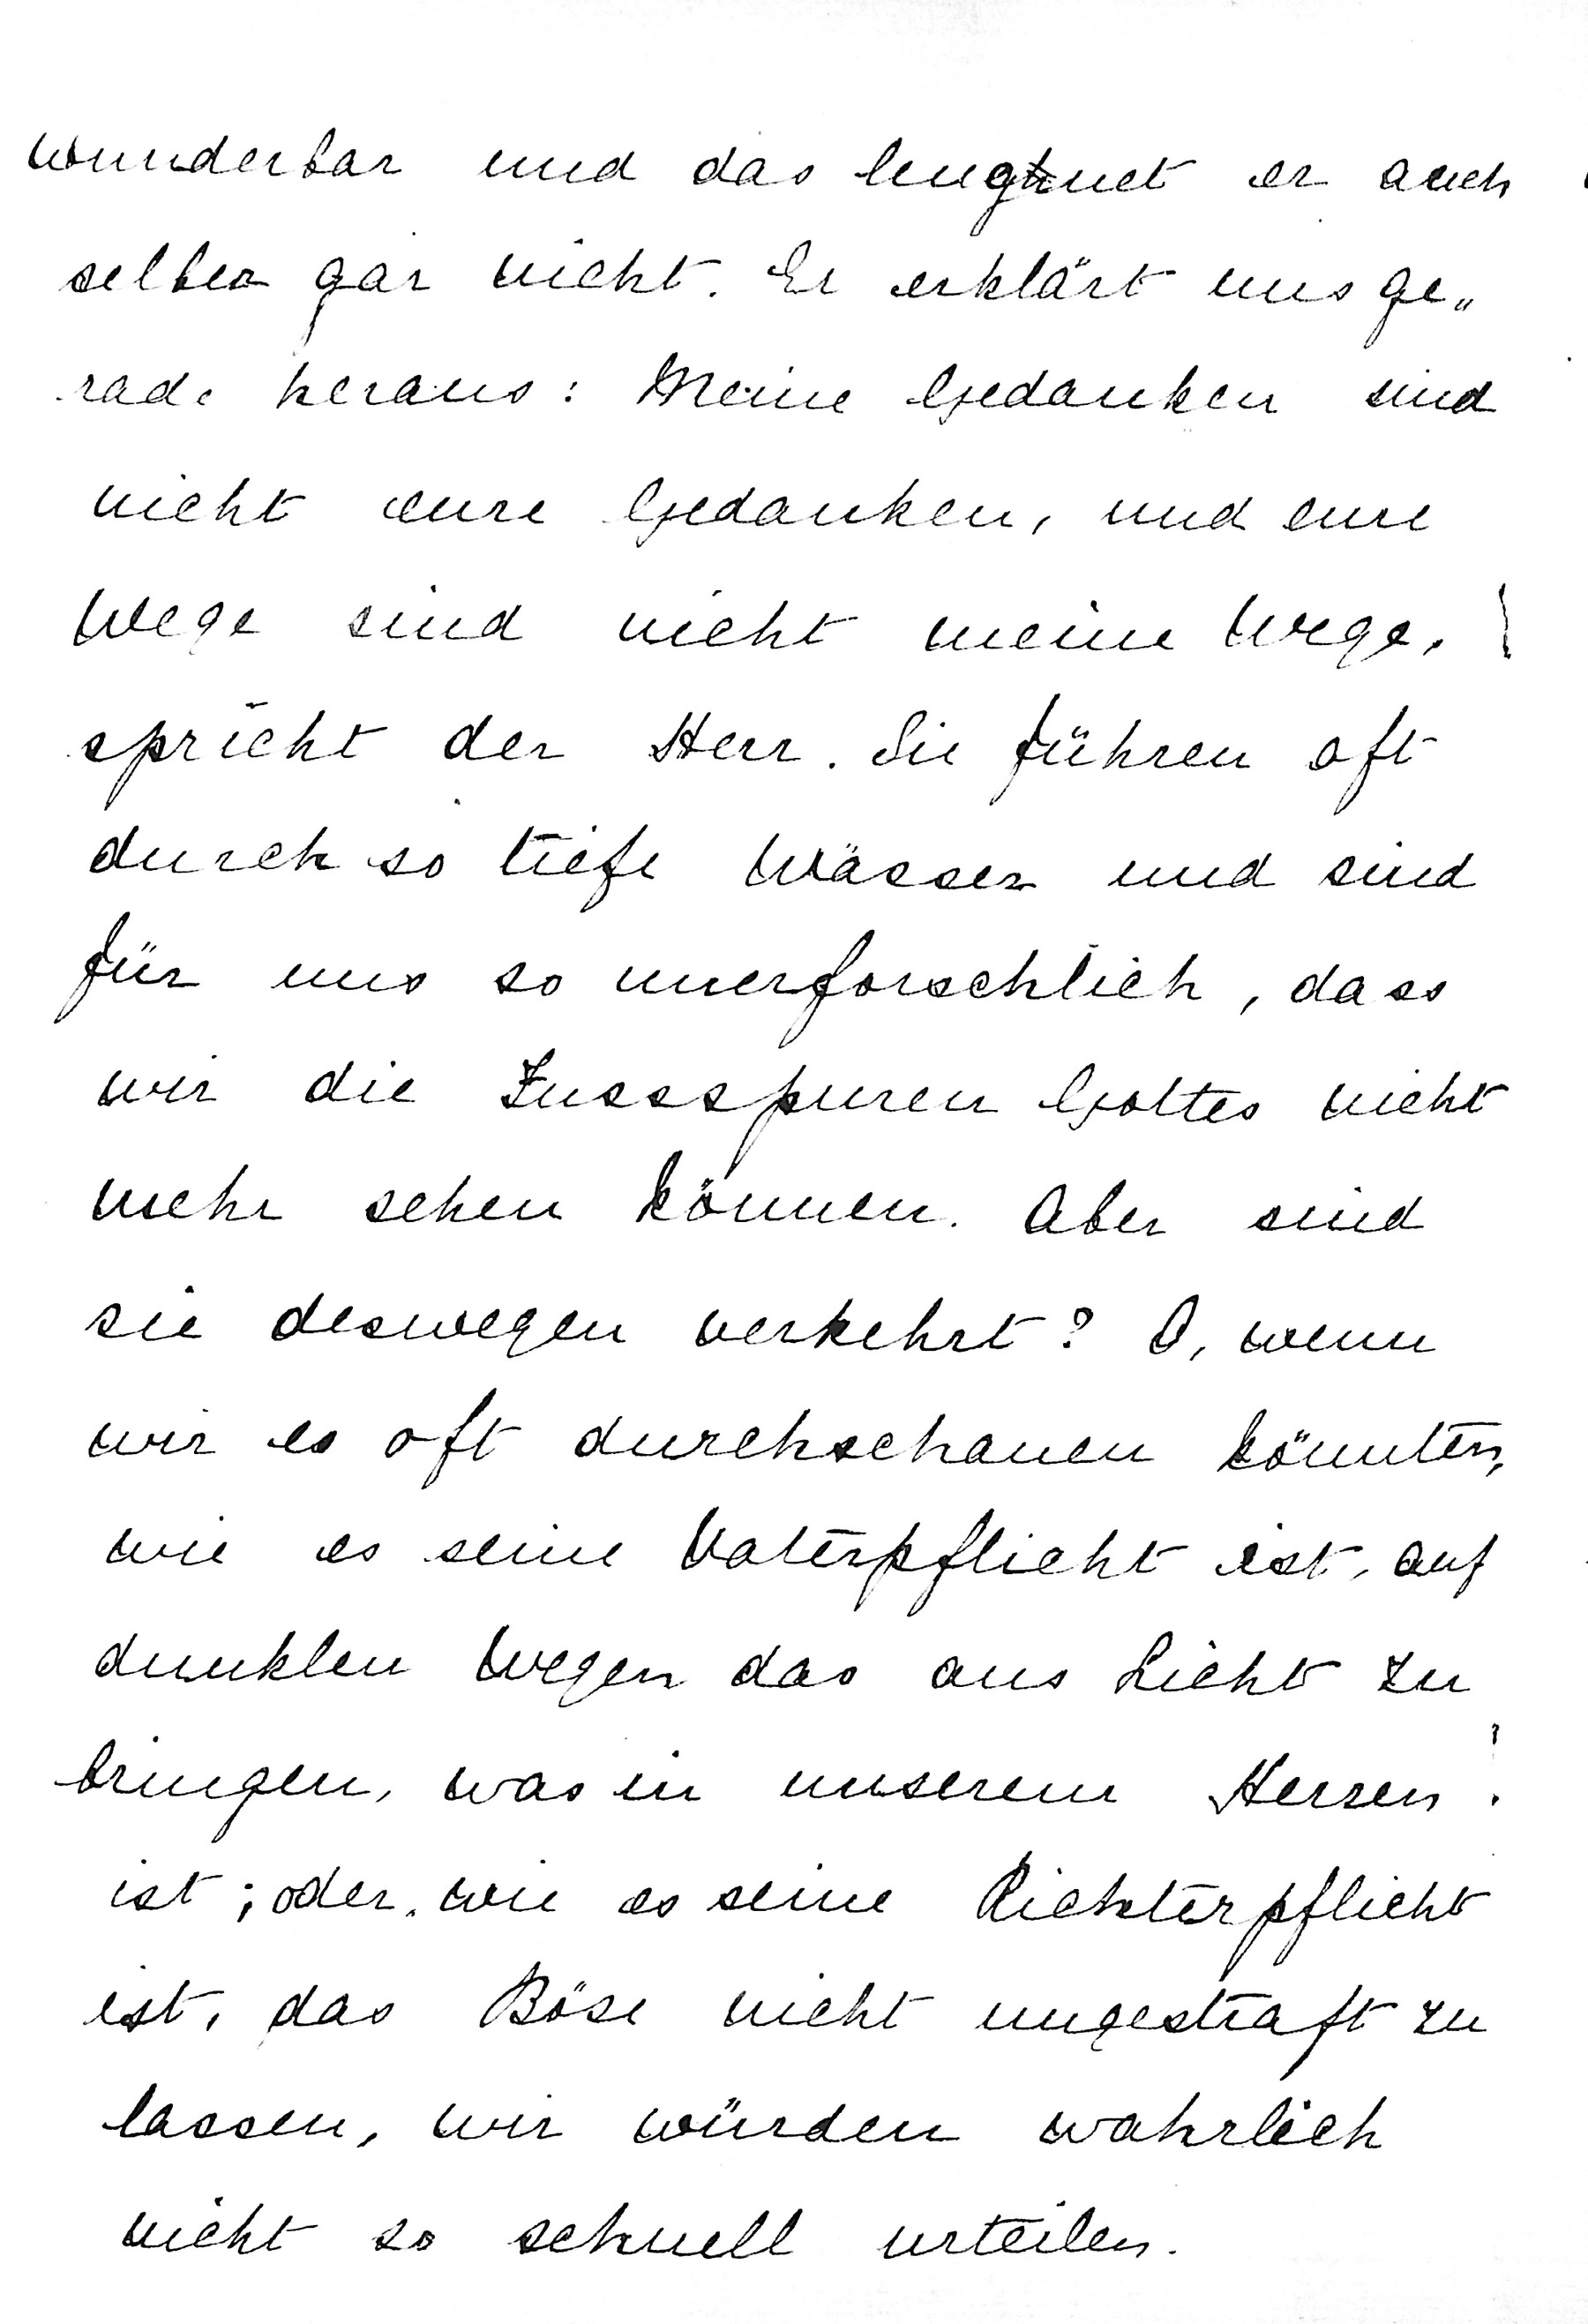 wunderbar und das leugnet er auch
selber gar nicht. Er erklärt uns ge„
rade heraus: Meine Gedanken sind
nicht eure Gedanken, und eure
Wege sind nicht meine Wege,
spricht der Herr. Sie führen oft
durch so tiefe Wässer und sind
für uns so unerforschlich, dass
wir die Fussspuren Gottes nicht
mehr sehen können. Aber sind
sie deswegen verkehrt? O, wenn
wir es oft durchschauen könnten,
wie es seine Vaterpflicht ist, auf
dunklen Wegen das ans Licht zu
bringen, was in unserem Herzen
ist; oder, wie es seine Richterpflicht
ist, das Böse nicht ungestraft zu
lassen, wir würden wahrlich
nicht so schnell urteilen.